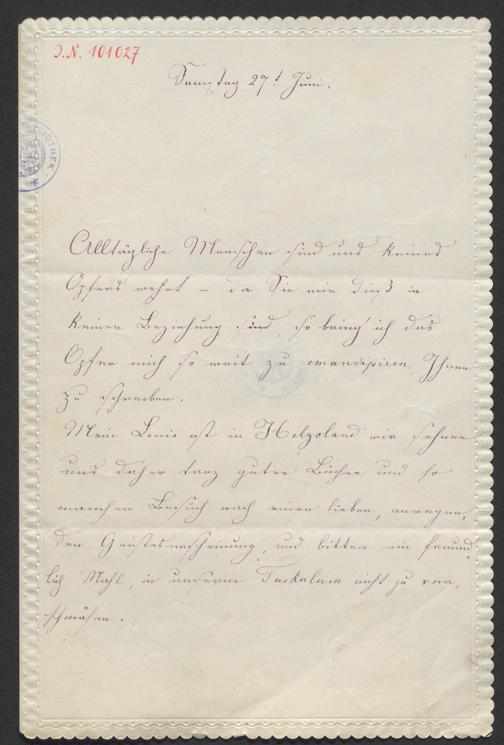 J.N. 101027
Samstag 27t Juni.
IOTHEK
Alltägliche Menschen sind uns keines
Opfers wehrt – da Sie mir dieß in
keiner Beziehung sind, so bring' ich das
Opfer mich so weit zu emancipiren, Ihnen
zu schreiben.
Mein Louis ist in Helgoland wir sehnen
uns daher troz guter Bücher und so
manchen Besuch nach einer lieben, anregen,
den Geisteserscheinung, und bitten ein freund
lich Mahl, in unserm Tuskulum nicht zu ver,
schmähen.